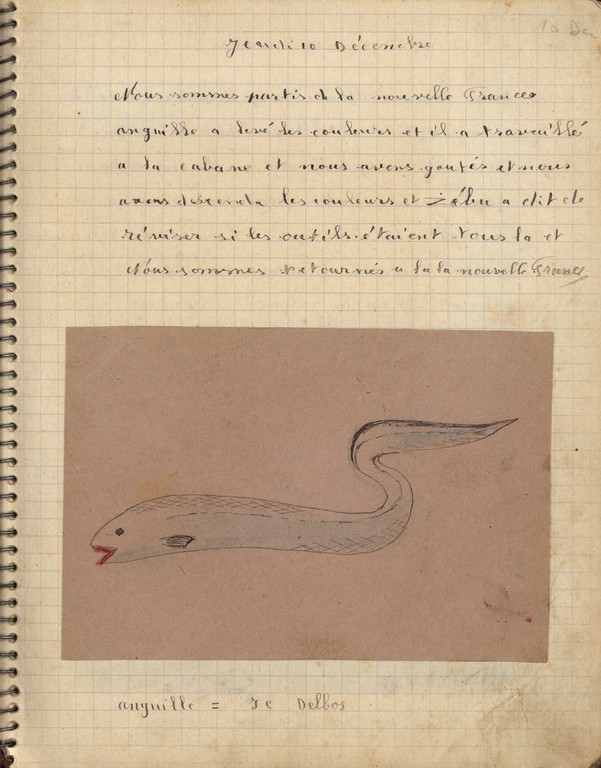 10 Dec
Jeudi 10 Décembre
Nous sommes partis de la nouvelle France
anguille a levé les couleurs et il a travaillé
a la cabane et nous avons goutés et nous
avons descendu les couleurs et Zébu a dit de
réviser si les outils étaient tous la et
Nous sommes retournés a la la nouvelle France
anguille = JC Delbos